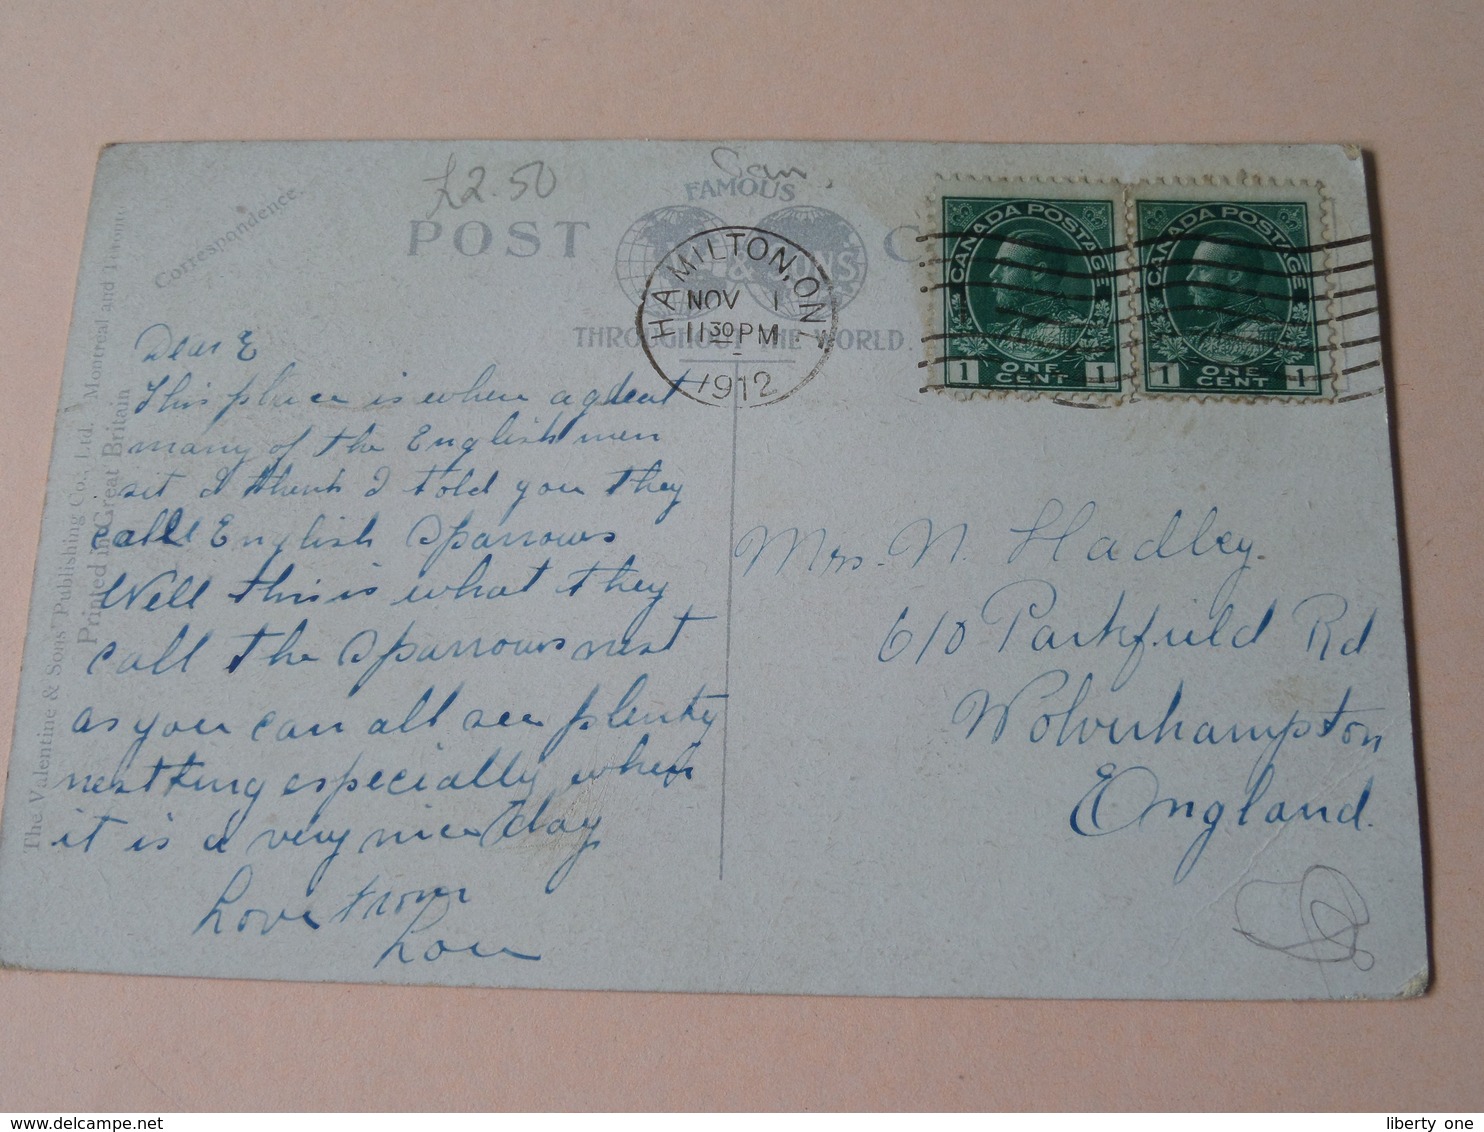 £2.50
Can.
Correspondence.
POST
FAMOUS
& SONS
THROUGHOUT THE WORLD.
HAMILTON, ONT
NOV 1
11 30 PM
1912
CANADA POSTAGE
1 ONE CENT 1
CANADA POSTAGE
1 ONE CENT 1
The Valentine & Sons' Publishing Co., Ltd. Montreal and Toronto
Printed in Great Britain
Dear E
This place is where a great
many of the English men
sit I think I told you they
call English Sparrows
Well this is what they
call the Sparrows nest
as you can all see plenty
nestking especially when
it is a very nice day
Love from
Lou
Mrs. N. Hadley.
610 Parkfield Rd
Wolverhampton
England.
liberty one